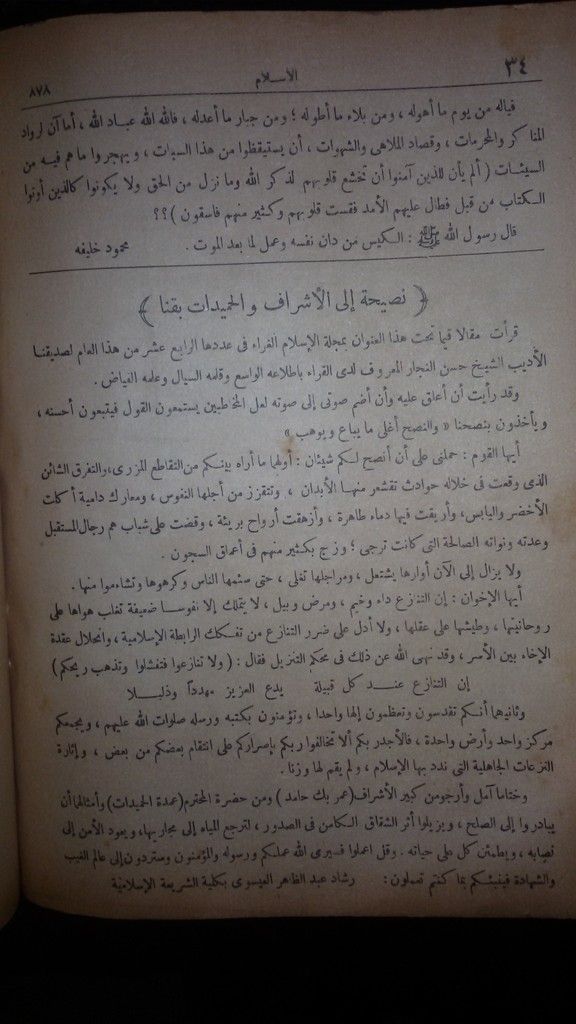 ٣٤
الإسلام
٨٧٨
فياله من يوم ما أهوله ، ومن بلاء ما أطوله ؛ ومن جبار ما أعدله ، فالله الله عباد الله ، أما آن لرواد
المناكر والمحرمات ، وقصاد الملاهى والشهوات ، أن يستيقظوا من هذا السبات ، ويهجروا ما هم فيه من
السيئات ( ألم يأن للذين آمنوا أن تخشع قلوبهم لذكر الله وما نزل من الحق ولا يكونوا كالذين أوتوا
الكتاب من قبل فطال عليهم الأمد فقست قلوبهم وكثير منهم فاسقون ) ؟؟
قال رسول الله ﷺ : الكيس من دان نفسه وعمل لما بعد الموت . محمود خليفه
﴿ نصيحة إلى الأشراف والحميدات بقنا ﴾
قرأت مقالا قيما تحت هذا العنوان بمجلة الإسلام الغراء فى عددها الرابع عشر من هذا العام لصديقنا
الأديب الشيخ حسن النجار المعروف لدى القراء باطلاعه الواسع وقلمه السيال وعلمه الفياض .
وقد رأيت أن أعلق عليه وأن أضم صوتى إلى صوته لعل المخاطبين يستمعون القول فيتبعون أحسنه ،
ويأخذون بنصحنا « والنصح أغلى ما يباع ويوهب »
أيها القوم : حملنى على أن أنصح لكم شيئان : أولهما ما أراه بينكم من التقاطع المزرى ، والتفرق الشائن
الذى وقعت فى خلاله حوادث تقشعر منها الأبدان ، وتتقزز من أجلها النفوس ، ومعارك دامية أكلت
الأخضر واليابس، وأريقت فيها دماء طاهرة ، وأزهقت أرواح بريئة ، وقضت على شباب هم رجال المستقبل
وعدته ونواته الصالحة التى كانت ترجى ؛ وزج بكثير منهم فى أعماق السجون .
ولا يزال إلى الآن أوارها يشتعل ، ومراجلها تغلى ، حتى سئمها الناس وكرهوها وتشاءموا منها .
أيها الإخوان : إن التنازع داء وخيم ، ومرض وبيل ، لا يتملك إلا نفوسا ضعيفة تغلب هواها على
روحانيتها ، وطيشها على عقلها ، ولا أدل على ضرر التنازع من تفكك الرابطة الإسلامية ، وانحلال عقدة
الإخاء بين الأسر ، وقد نهى الله عن ذلك فى محكم التنزيل فقال : ( ولا تنازعوا فتفشلوا وتذهب ريحكم )
إن التنازع عند كل قبيلة يدع العزيز مهددا وذليلا
وثانيهما أنكم تقدسون وتعظمون إلها واحدا ، وتؤمنون بكتبه ورسله صلوات الله عليهم ، ويجمعكم
مركز واحد وأرض واحدة ، فالأجدر بكم ألا تخالفوا ربكم بإصراركم على انتقام بعضكم من بعض ، وإثارة
النزعات الجاهلية التى ندد بها الإسلام ، ولم يقم لها وزنا .
وختاما آمل وأرجو من كبير الأشراف (عمر بك حامد) ومن حضرة المحترم (عمدة الحميدات) وأمثالهما أن
يبادروا إلى الصلح ، ويزيلوا أثر الشقاق الكامن فى الصدور ، لترجع المياه إلى مجاريها، ويعود الأمن إلى
نصابه ، ويطمئن كل على حياته . وقل اعملوا فسيرى الله عملكم ورسوله والمؤمنون وستردون إلى عالم الغيب
والشهادة فينبئكم بما كنتم تعملون : رشاد عبد الظاهر العيسوى بكلية الشريعة الإسلامية